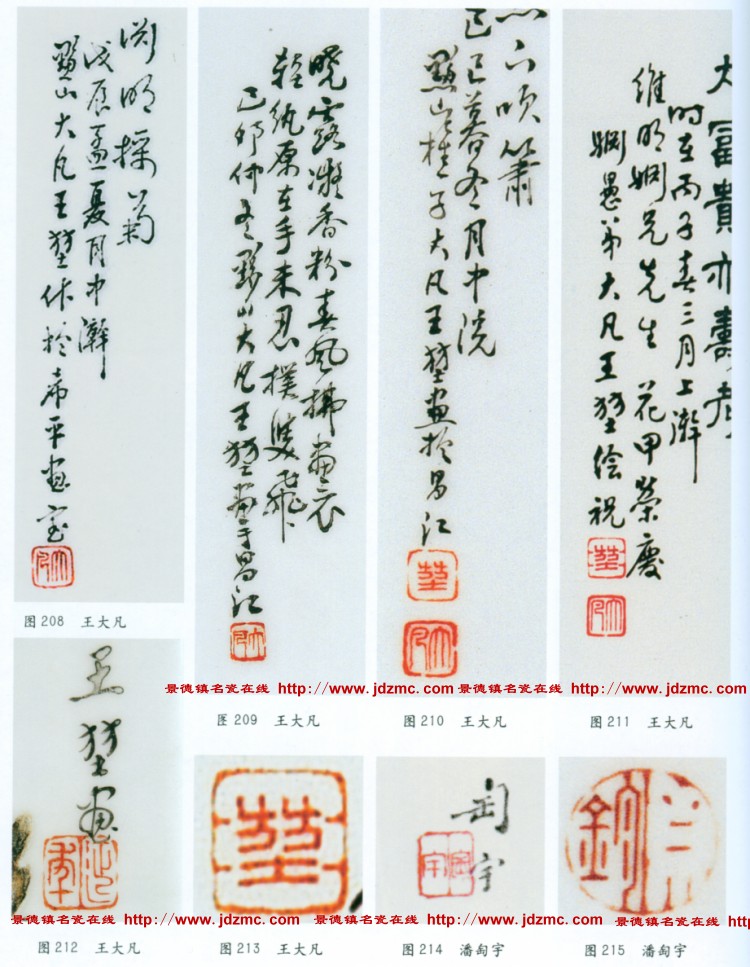 渊明採菊
戊辰孟夏月中澣
黟山大凡王堃作於希平画室
大凡
图208 王大凡
晓露凝香粉春風拂畫衣
轻纨原在手未忍撲雙飛
己卯仲冬黟山大凡王堃畫于昌江
大凡
图209 王大凡
吹箫
己巳暮冬月中浣
黟山樵子大凡王堃画於昌江
堃
大凡
图210 王大凡
大富貴亦壽考
时在丙子春三月上澣
维明姻兄先生 花甲荣慶
姻愚弟大凡王堃绘祝
堃
大凡
图211 王大凡
景德镇名瓷在线 http://www.jdzmc.com 景德镇名瓷在线 http://www.jdzmc.com
王堃画
图212 王大凡
堃
图213 王大凡
匋宇
图214 潘匋宇
图215 潘匋宇
景德镇名瓷在线 http://www.jdzmc.com 景德镇名瓷在线 http://www.jdzmc.com 景德镇名瓷在线 http:/